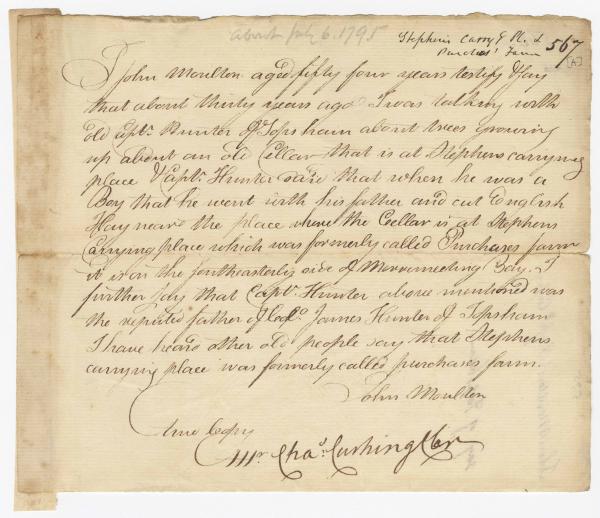 about July 6. 1795
Stephens Carry g Pl. &
Purchas' Farm
567
[A]
I John Moulton aged fifty four years testify & say
that about thirty years ago I was talking with
old Capt. Hunter of Topsham about trees growing
up about an old Cellar that is at Stephens carrying
place & Capt. Hunter said that when he was a
Boy that he went with his father and cut English
Hay near the place where the Cellar is at Stephens
Carrying place which was formerly called Purchases farm
it is on the southeasterly side of Merrymeeting Bay. I
further say that Capt. Hunter above mentioned was
the reputed father of James Hunter of Topsham
I have heard other old people say that Stephens
carrying place was formerly called purchases farm.
John Moulton
true Copy
Chas. Cushing Cler